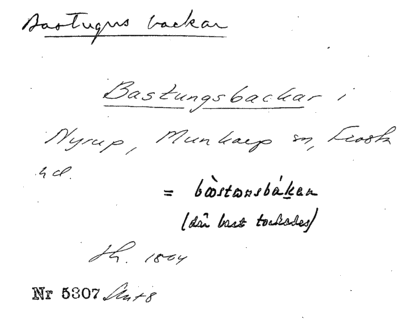 Bastugns backar
Bastungsbackar i
Nyrup, Munkarp sn, Frosta
hd.
= bàstomsbákan
(där bast torkades)
1804
Nr 5307